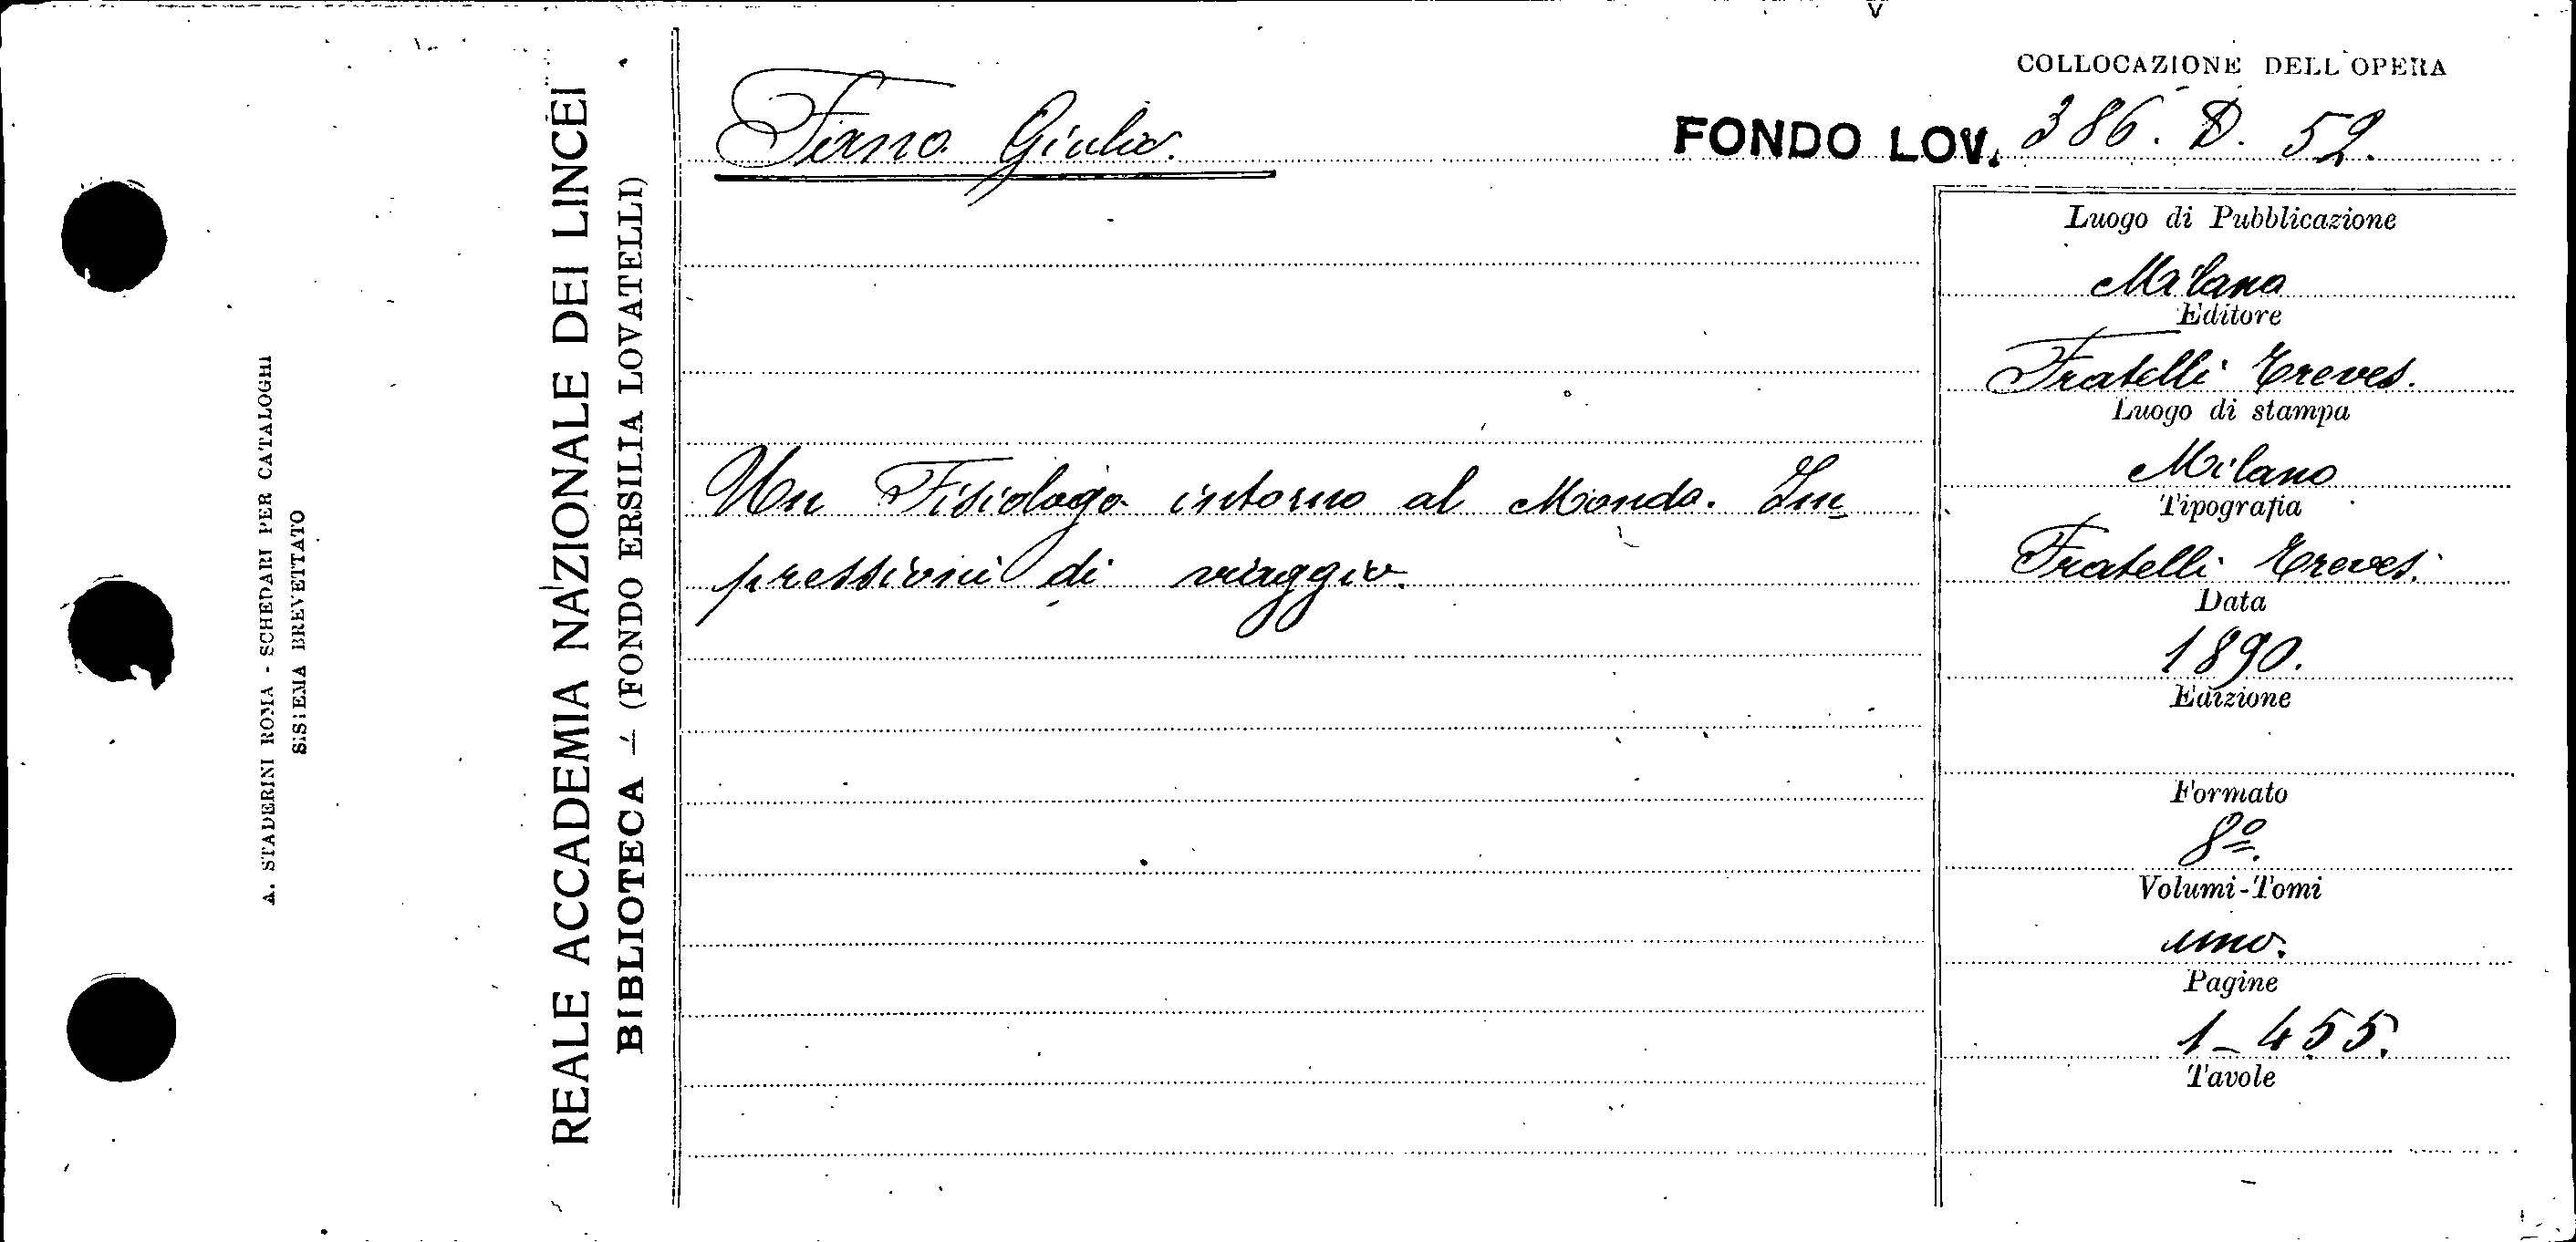 A. STADERINI ROMA - SCHEDARI PER CATALOGHI
SISTEMA BREVETTATO
REALE ACCADEMIA NAZIONALE DEI LINCEI
BIBLIOTECA - (FONDO ERSILIA LOVATELLI)
COLLOCAZIONE DELL'OPERA
Fano Giulio.
FONDO LOV. 386. D. 52.
Un Fisiologo intorno al Mondo. Im
pressioni di viaggio.
Luogo di Pubblicazione
Milano
Editore
Fratelli Treves.
Luogo di stampa
Milano
Tipografia
Fratelli Treves.
Data
1890.
Edizione
Formato
8º.
Volumi-Tomi
uno.
Pagine
1-455.
Tavole